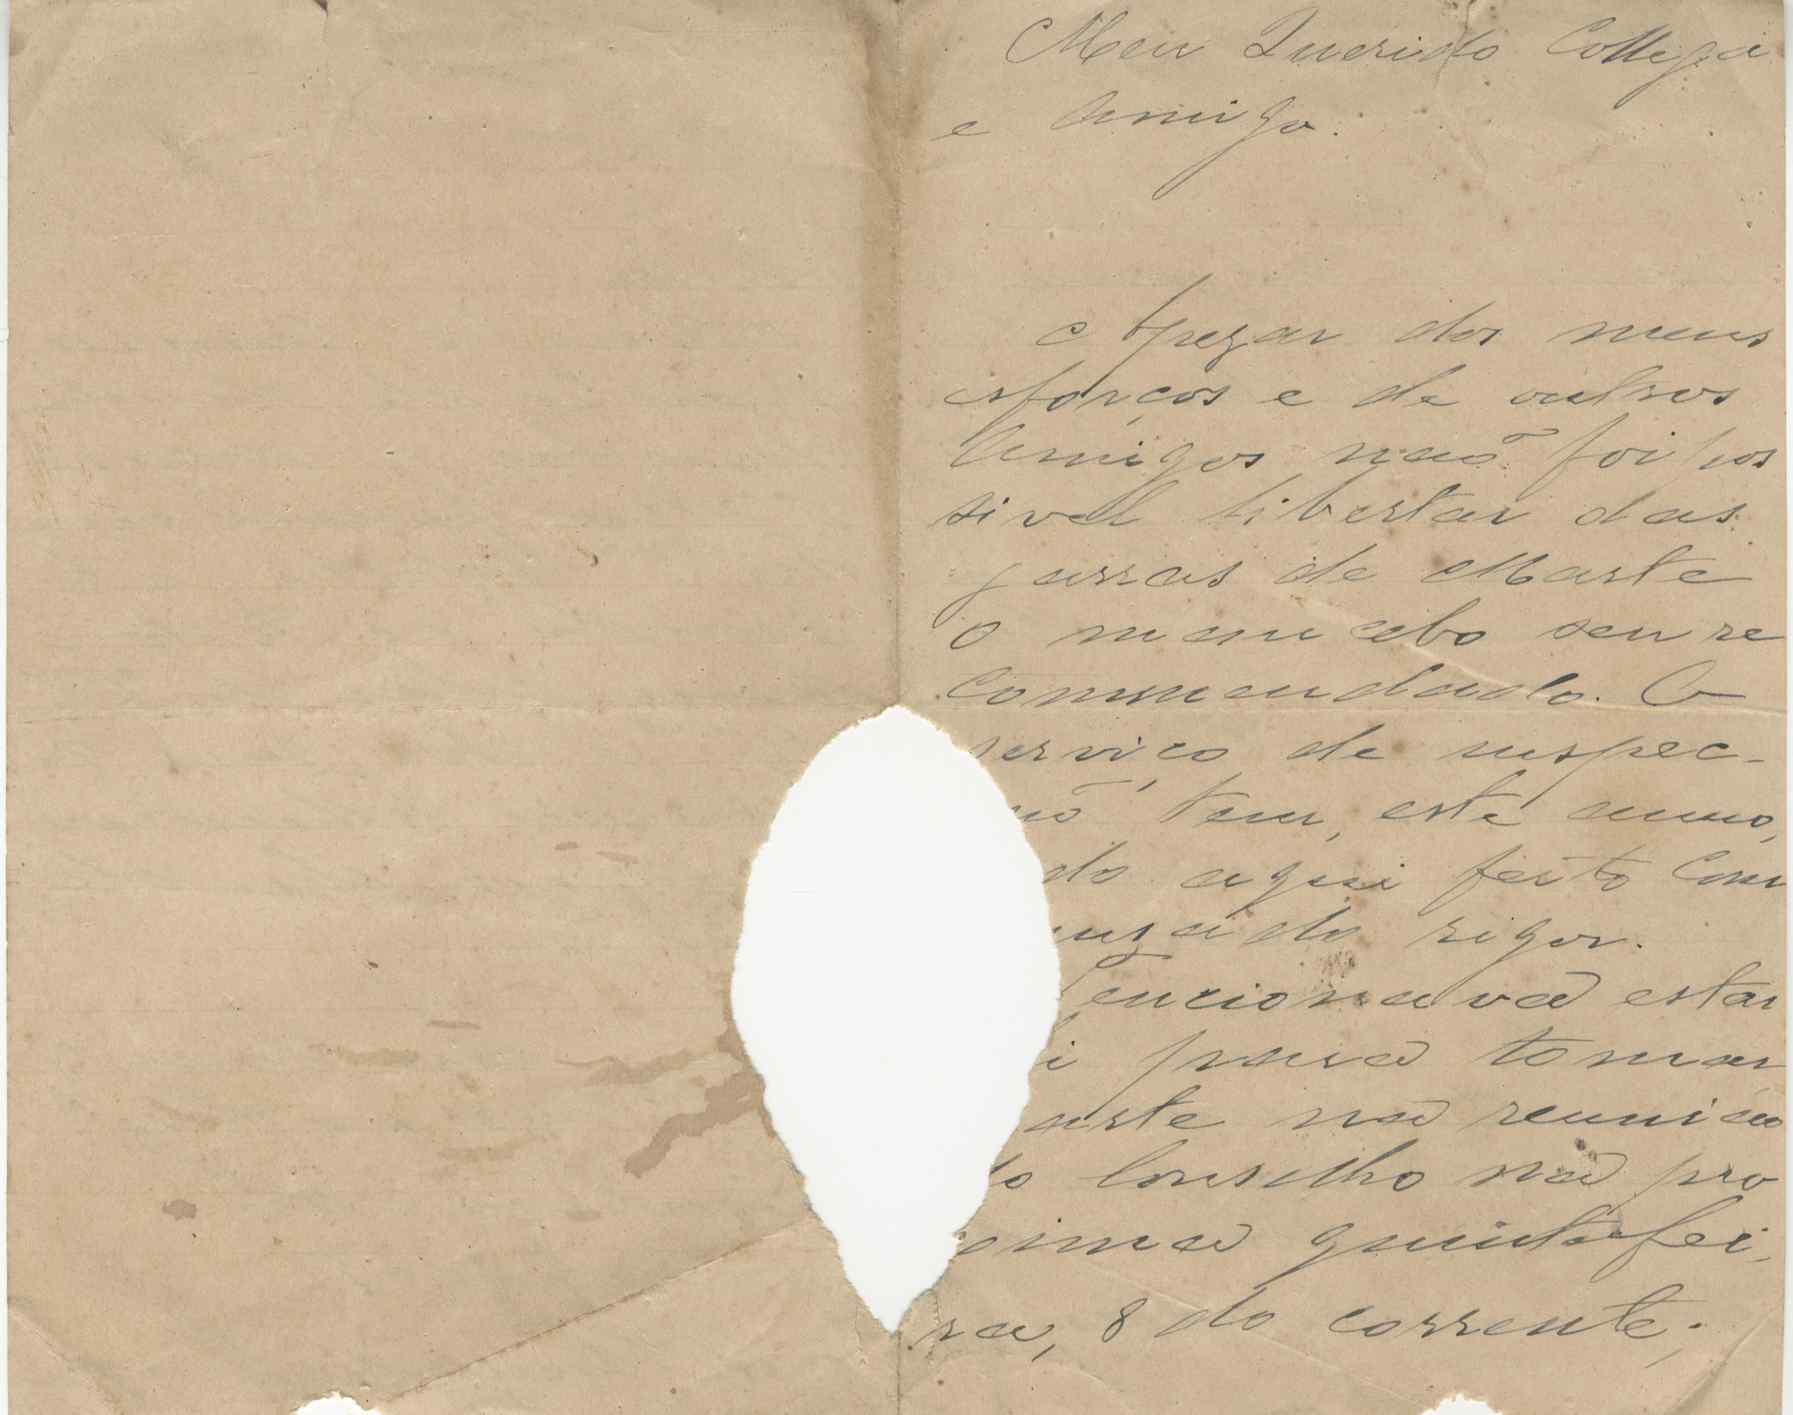 Meu Querido Collega
e Amigo.
Apezar dos meus
esforços e de outros
Amigos não foi pos
sivel libertar das
garras de Marte
o mancebo seu re
commendado. O
serviço de inspec-
ão tem, este anno,
do aqui feito com
rigor.
encionava estar
i para tomar
arte na reunião
do Conselho na pro
xima quinta fei
ra, 8 do corrente;